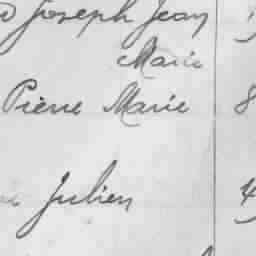 Joseph Jean
Marie
Pierre Marie 8
Julien 4